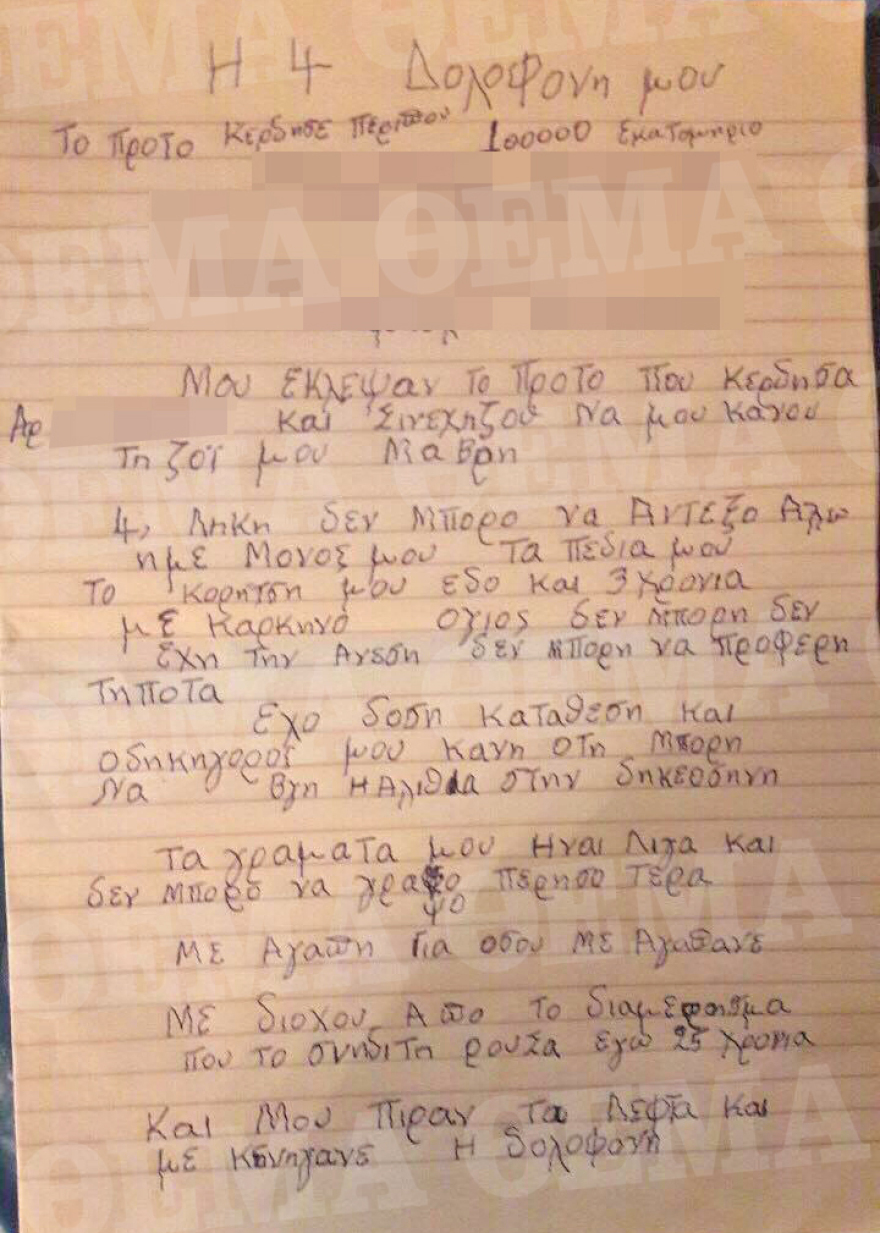 Η 4 Δολοφονη μου
Το Προτο Κερδησε Περιπου 100000 Εκατομηριο
Μου Εκλεψαν το Προτο Που Κερδησα
Αρ και Σινεχηζου Να μου Κανου
Τη ζοϊ μου Μαβρη
4, Λικη δεν Μπορο να Αντεξο Αλω
ημε Μονος μου Τα Πεδια μου
Το Κορητση μου εδο και 3 χρονια
με Καρκηνο ογιος δεν Μπορη δεν
Εχη την Ανεση δεν μπορη να προφερη
Τηποτα
Εχο δοση καταθεση και
οδηκηγοροϊ μου κανη οτη Μπορη
Να Βγη Η Αλιθια στην δηκεοσηνη
Τα γραματα μου Ηναι Λιγα και
δεν Μπορο να γραψο περησο τερα
ψο
Με Αγαπη Για οσου Με Αγαπανε
Με διοχου Απο το διαμερησμα
που το συνηδιτη ρουσα εγω 25 χρονια
Και Μου Πιραν τα Λεφτα και
με Κυνηγανε Η δολοφονη